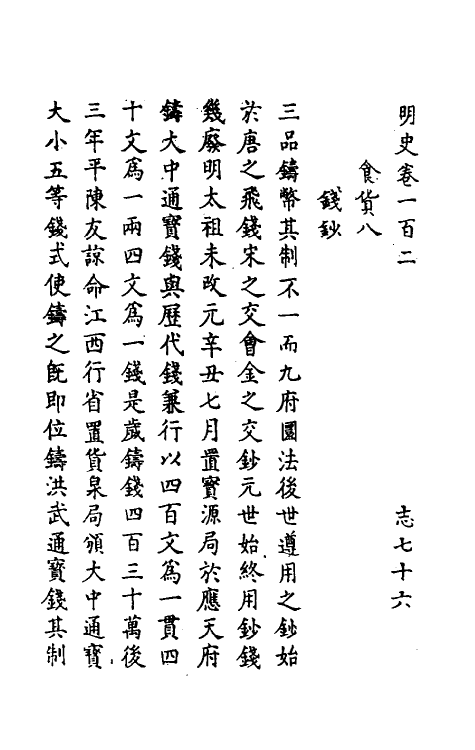 明史卷一百二　志七十六
食貨八
錢鈔
三品鑄幣其制不一而九府圜法後世遵用之鈔始
於唐之飛錢宋之交會金之交鈔元世始終用鈔錢
幾廢明太祖未改元辛丑七月置寳源局於應天府
鑄大中通寳錢與歴代錢兼行以四百文爲一貫四
十文爲一兩四文爲一錢是歲鑄錢四百三十萬後
三年平陳友諒命江西行省置貨泉局頒大中通寳
大小五等錢式使鑄之旣即位鑄洪武通寳錢其制